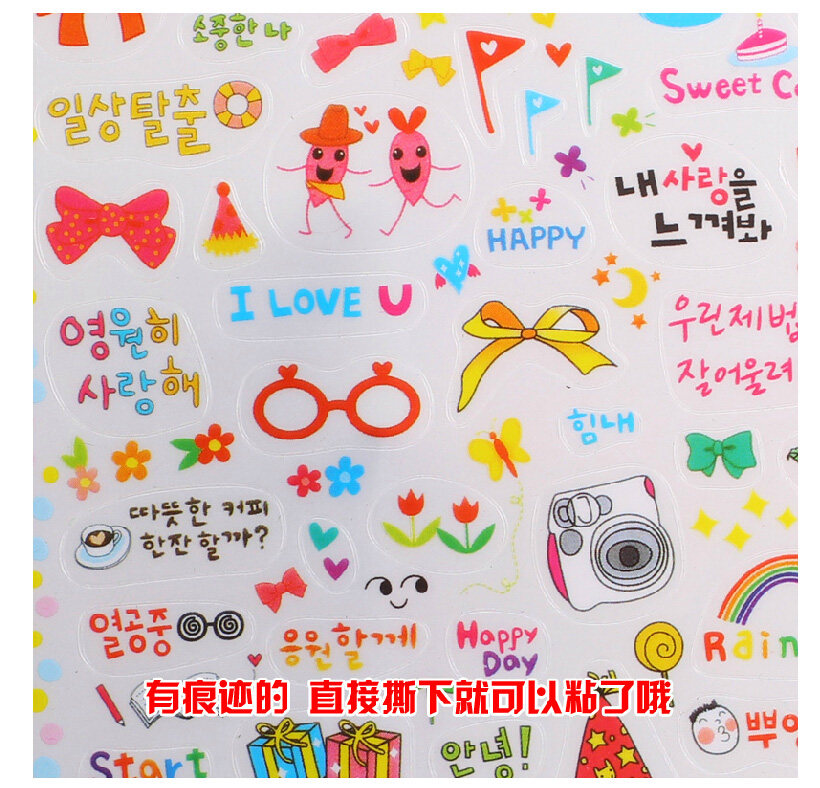 소중한 나
Sweet
일상탈출
내 사랑을
느껴봐
HAPPY
I LOVE U
영원히
사랑해
우린 제법
잘어울려
힘내
따뜻한 커피
한잔 할까?
열공중
응원할게
Happy
Day
有痕迹的 直接撕下就可以粘了哦
Start
안녕!